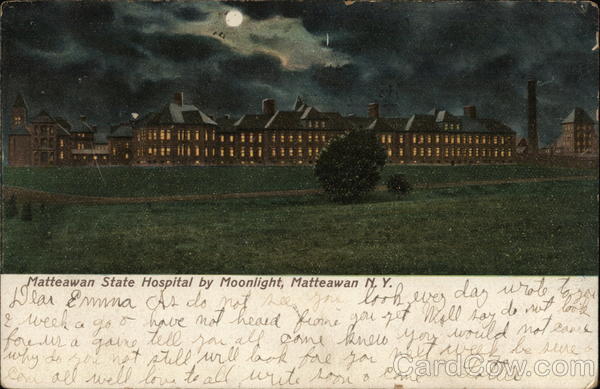 Matteawan State Hospital by Moonlight, Matteawan N.Y.
Dear Emma As do not see you look ever day wrote to you
2 week a go & have not heared frome you yet Mell say do not look
fore us a gaine tell you all come knew you would not came
why do you not still will look fore you But west be sure &
Com all well love to all write soon & come
CardCow.com